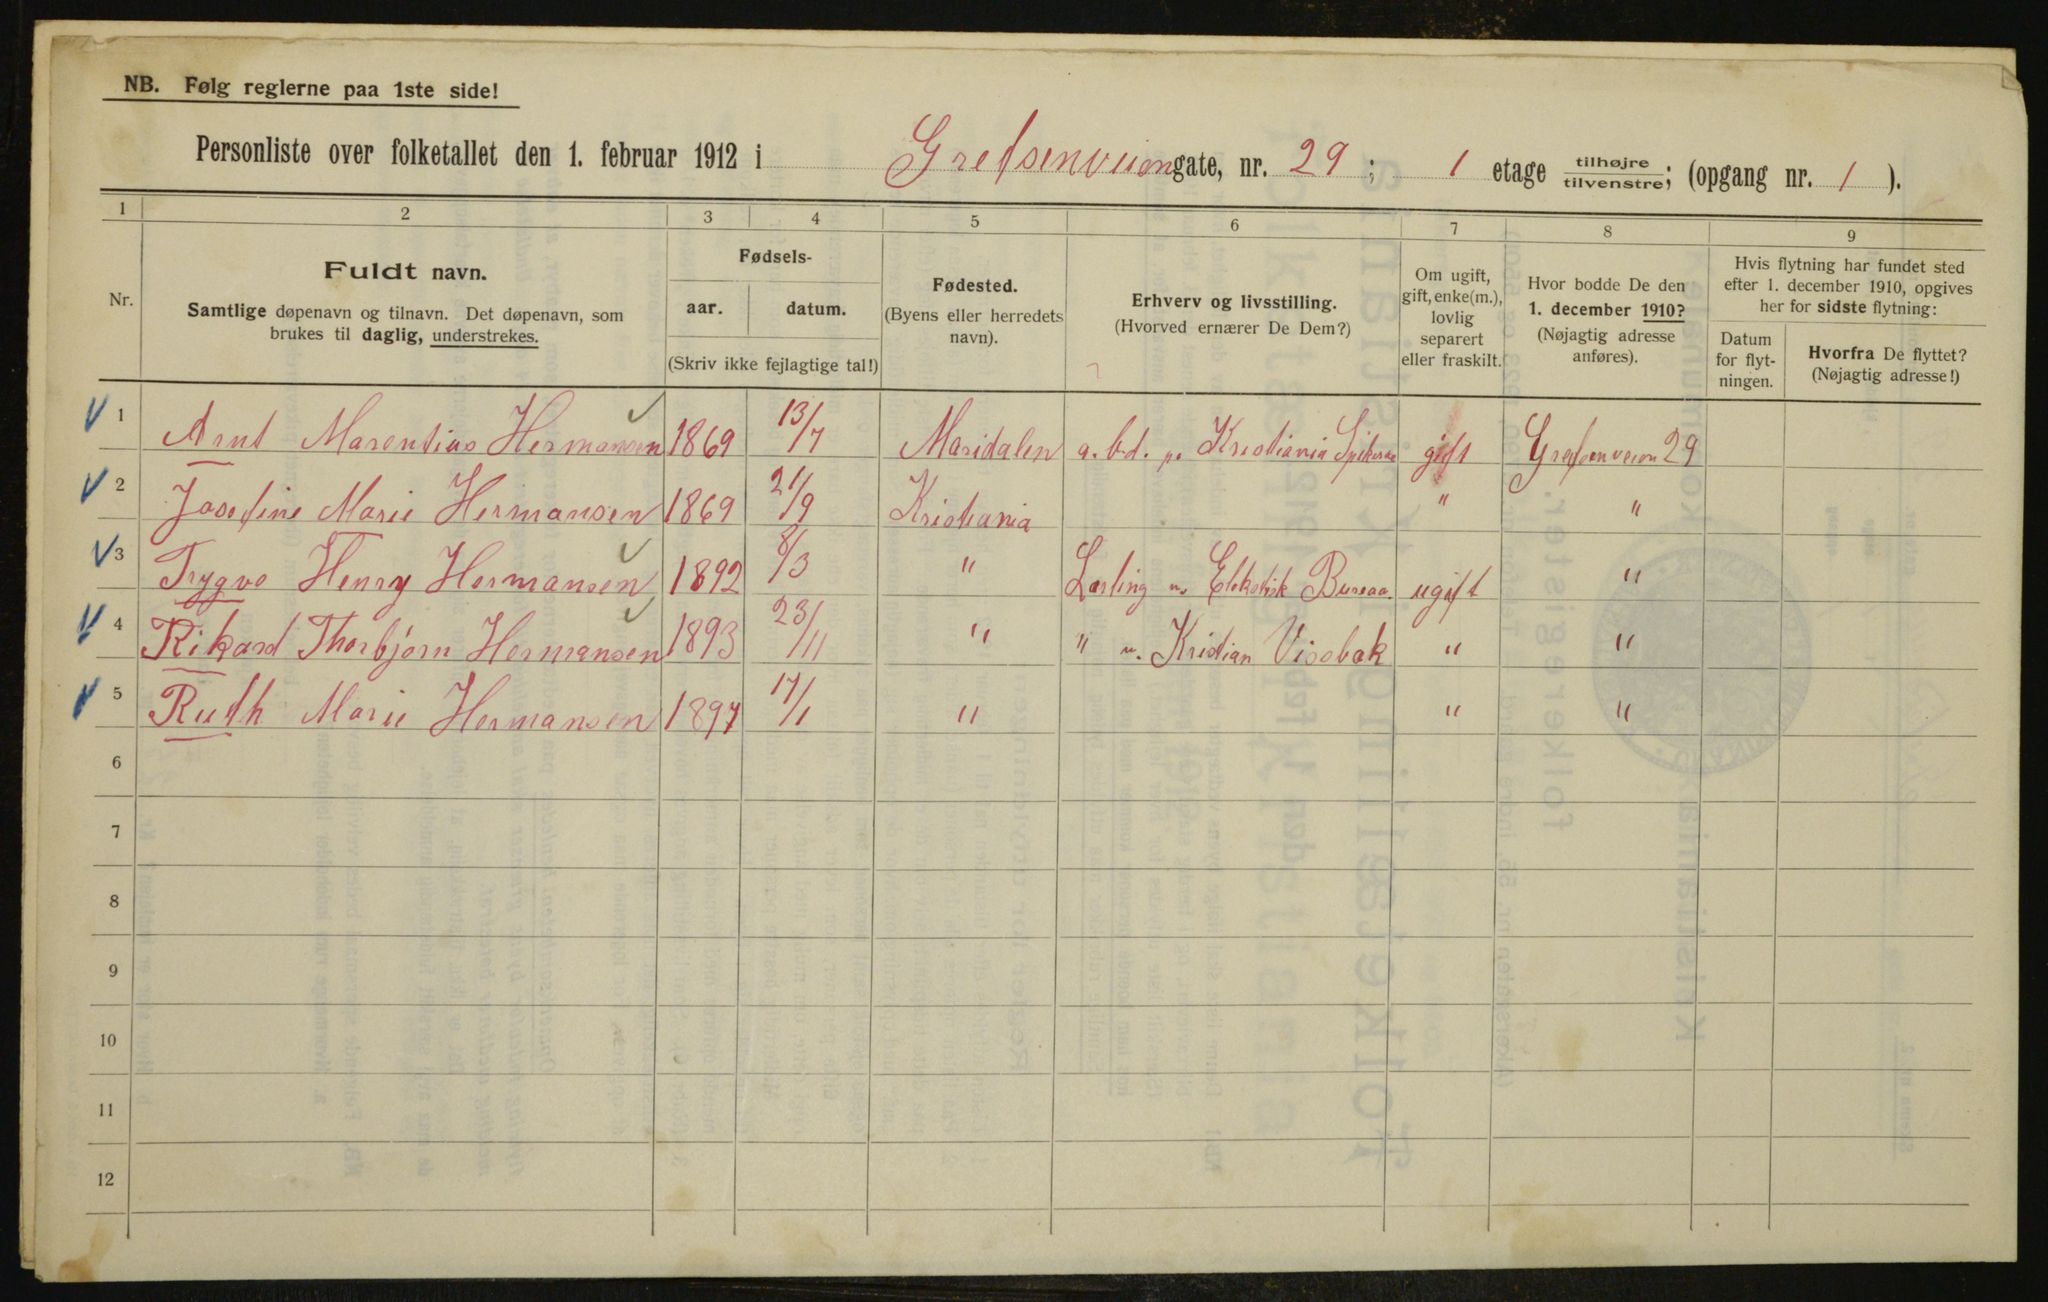 NB. Følg reglerne paa 1ste side!
Personliste over folketallet den 1. februar 1912 i Grefsenveien gate, nr. 29 ; 1 etage tilhøjre/tilvenstre; (opgang nr. 1 ).
1 2 3 4 5 6 7 8 9
Nr.
Fuldt navn.
Samtlige døpenavn og tilnavn. Det døpenavn, som
brukes til daglig, understrekes.
Fødsels-
aar. datum.
(Skriv ikke fejlagtige tal!)
Fødested.
(Byens eller herredets
navn).
Erhverv og livsstilling.
(Hvorved ernærer De Dem?)
Om ugift,
gift, enke(m.),
lovlig
separert
eller fraskilt.
Hvor bodde De den
1. december 1910?
(Nøjagtig adresse
anføres).
Hvis flytning har fundet sted
efter 1. december 1910, opgives
her for sidste flytning:
Datum
for flyt-
ningen.
Hvorfra De flyttet?
(Nøjagtig adresse!)
1 Arnt Marentius Hermansen 1869 13/7 Maridalen a.b.d. Kristiania gift Grefsenveien 29
2 Josefine Marie Hermansen 1869 21/9 Kristiania " "
3 Trygve Henry Hermansen 1892 8/3 " Lærling Elektrisk Bureau ugift "
4 Rikard Thorbjørn Hermansen 1893 23/11 " " Kristian " "
5 Ruth Marie Hermansen 1897 17/1 " " "
6
7
8
9
10
11
12